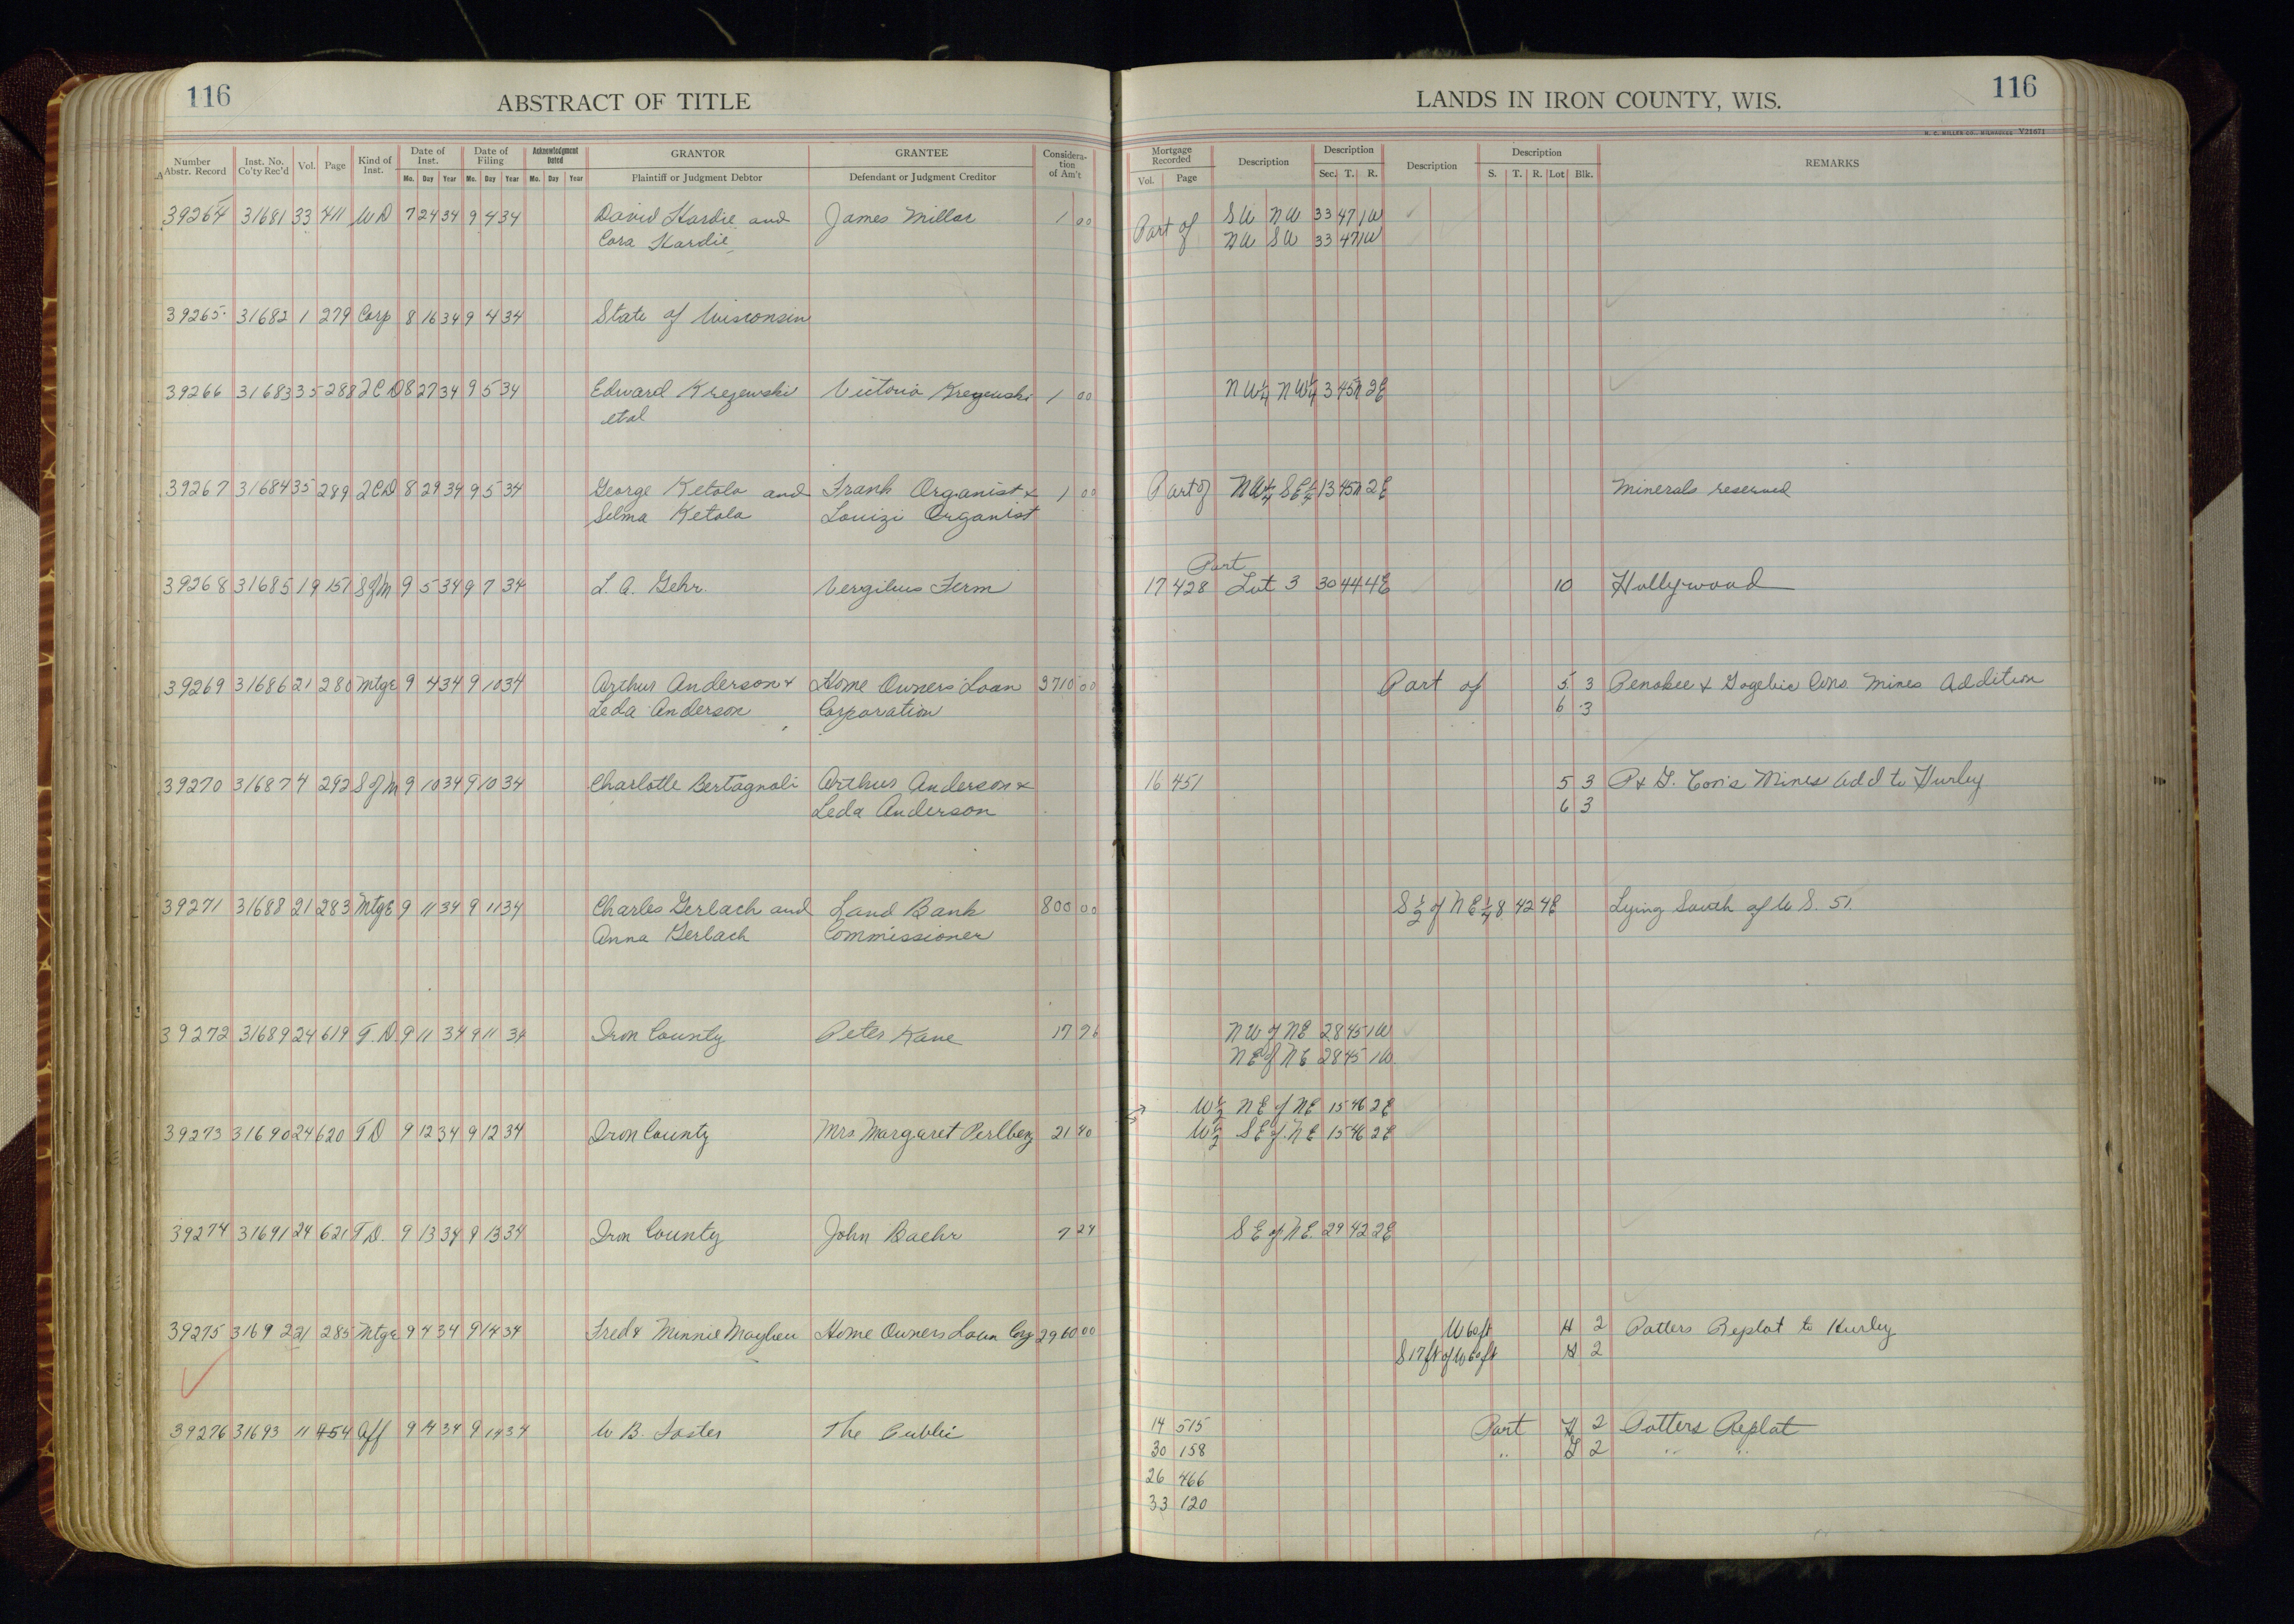 116 ABSTRACT OF TITLE LANDS IN IRON COUNTY, WIS. 116
H. C. MILLER CO., MILWAUKEE V21671
Number Abstr. Record Inst. No. Co'ty Rec'd Vol. Page Kind of Inst. Date of Inst. Mo. Day Year Date of Filing Mo. Day Year Acknowledgment Dated Mo. Day Year GRANTOR Plaintiff or Judgment Debtor GRANTEE Defendant or Judgment Creditor Considera-tion of Am't Mortgage Recorded Vol. Page Description Description Sec. T. R. Description Description S. T. R. Lot Blk. REMARKS
39264 31681 33 411 WD 7 24 34 9 4 34 David Hardie and James Millar 1 00 Part of SW NW 33 47 1W
Cora Hardie NW SW 33 47 1W
39265 31682 1 279 Corp 8 16 34 9 4 34 State of Wisconsin
39266 31683 35 288 2CD 8 27 34 9 5 34 Edward Krezewski Victoria Krezewski 1 00 NW¼ NW¼ 3 45N 2E
etal
39267 31684 35 289 2CD 8 29 34 9 5 34 George Ketola and Frank Organist & 1 00 Part of NW¼ SE¼ 13 45N 2E Minerals reserved
Selma Ketola Louizi Organist
Part
39268 31685 19 151 S of M 9 5 34 9 7 34 L. A. Gehr. Vergilius Ferm 17 428 Lot 3 30 44 4E 10 Hollywood
39269 31686 21 280 Mtge 9 4 34 9 10 34 Arthur Anderson & Home Owners' Loan 3710 00 Part of 5 3 Penokee & Gogebic Cons. Mines Addition
Leda Anderson Corporation 6 3
39270 31687 4 292 S of M 9 10 34 9 10 34 Charlotte Bertagnoli Arthur Anderson & 16 451 5 3 P & G. Con's Mines Add to Hurley
Leda Anderson 6 3
39271 31688 21 283 Mtge 9 11 34 9 11 34 Charles Gerlach and Land Bank 800 00 S½ of NE¼ 8 42 4E Lying South of U.S. 51.
Anna Gerlach Commissioner
39272 31689 24 619 T.D. 9 11 34 9 11 34 Iron County Peter Kane 17 76 NW of NE 28 45 1W
NE of NE 28 45 1W
W½ NE of NE 15 46 2E
39273 31690 24 620 TD 9 12 34 9 12 34 Iron County Mrs Margaret Perlberg 21 40 W½ SE of NE 15 46 2E
39274 31691 24 621 T.D. 9 13 34 9 13 34 Iron County John Baehr 7 24 SE of NE. 29 42 2E
39275 31692 21 285 Mtge 9 4 34 9 14 34 Fred & Minnie Home Owners Loan Corp 2960 00 W 60 ft H 2 Potters Replat to Hurley
S 17 ft of W 60 ft 2
39276 31693 11 454 Aff 9 14 34 9 14 34 W B. Foster The Public 14 515 Part H 2 Potters Replat
30 158 " G 2 " "
26 466
33 120